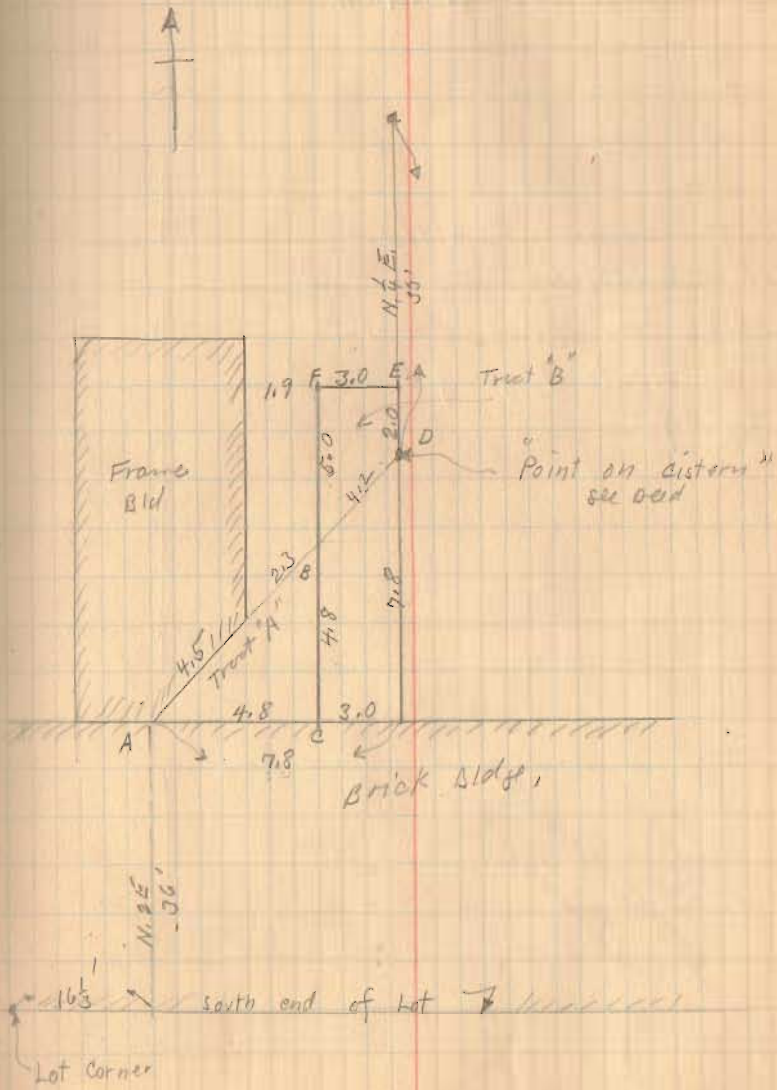 N. ¼ E.
35'
1.9
F
3.0
E
Tract "B"
2.0
D
5.0
4.2
"Point on cistern"
see Deed
Frame
Bld
2.3
B
7.8
4.8
4.5
Tract "A"
4.8
3.0
A
C
7.8
Brick Bldg.
36'
16⅓'
South end of Lot
Lot Corner